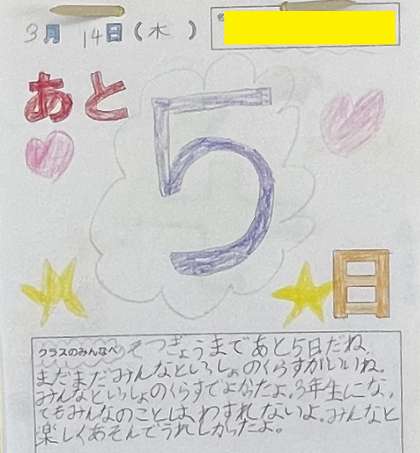 3月 14日(木)
あと
5
日
クラスのみんなへ そつぎょうまであと5日だね。
まだまだみんなといっしょのくらすがいいね。
みんなといっしょのくらすでよかったよ。3年生になっ
てもみんなのことは、わすれないよ。みんなと
楽しくあそんでうれしかったよ。